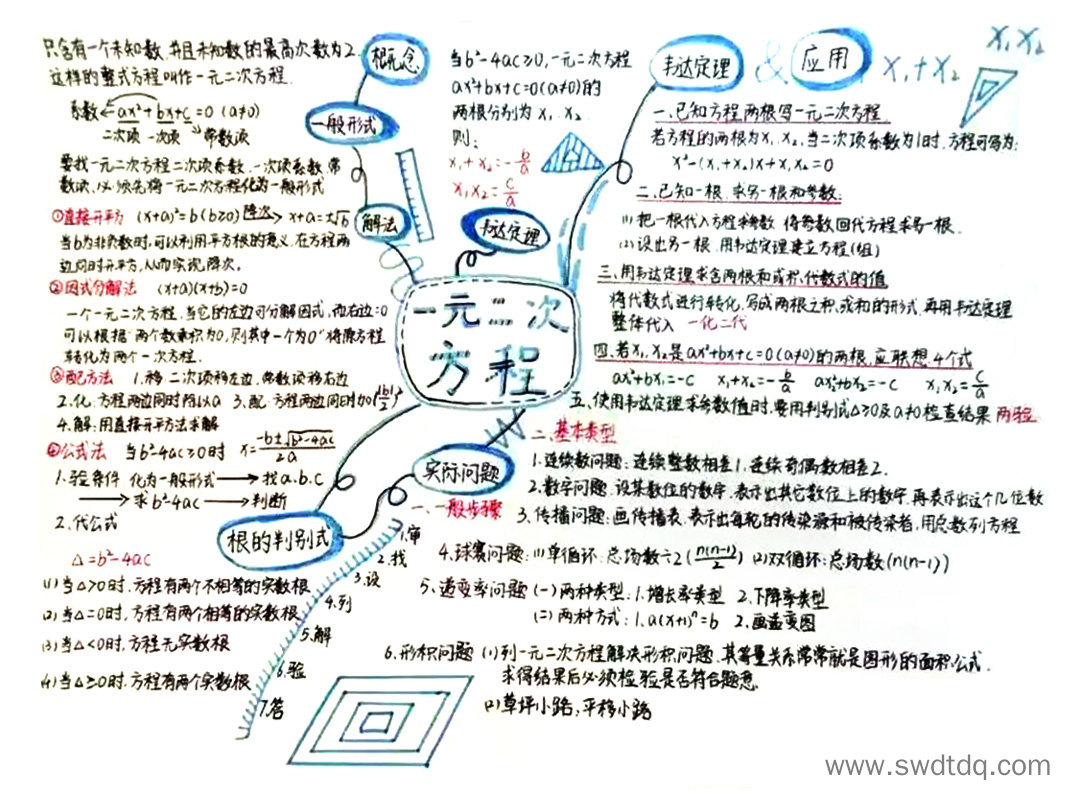 一元二次
方程
概念
只含有一个未知数,并且未知数的最高次数为2.
这样的整式方程叫作一元二次方程.
一般形式
系数 ax²+bx+c=0 (a≠0)
二次项 一次项 常数项
要找一元二次方程二次项系数.一次项系数.常
数项,必须先将一元二次方程化为一般形式
解法
①直接开平 (x+a)²=b(b≥0) 降次 x+a=±√b
当b为非负数时,可以利用平方根的意义.在方程两
边同时开平方,从而实现降次.
②因式分解法 (x+a)(x+b)=0
一个一元二次方程,当它的左边可分解因式,而右边=0
可以根据"两个数乘积为0,则其中一个为0"将原方程
转化为两个一次方程.
③配方法 1.移:二次项移左边,常数项移右边
2.化:方程两边同时除以a 3.配:方程两边同时加(|b|/2)²
4.解:用直接开平方法求解
④公式法 当b²-4ac≥0时 x=-b±√b²-4ac/2a
1.验条件 化为一般形式→找a.b.c
→求b²-4ac→判断
2.代公式
根的判别式
Δ=b²-4ac
(1)当Δ>0时.方程有两个不相等的实数根
(2)当Δ=0时,方程有两个相等的实数根
(3)当Δ<0时,方程无实数根
(4)当Δ≥0时,方程有两个实数根
韦达定理
当b²-4ac≥0,一元二次方程
ax²+bx+c=0(a≠0)的
两根分别为x₁.x₂
则:
x₁+x₂=-b/a
x₁x₂=c/a
韦达定理 & 应用
x₁+x₂
x₁x₂
一.已知方程两根写一元二次方程
若方程的两根为x₁,x₂,当二次项系数为1时,方程可写为:
x²-(x₁+x₂)x+x₁x₂=0
二.已知一根.求另一根和参数:
(1)把一根代入方程求参数 将参数回代方程求另一根.
(2)设出另一根.用韦达定理建立方程(组)
三.用韦达定理求含两根和或积.代数式的值
将代数式进行转化,写成两根之积,或和的形式.再用韦达定理
整体代入 一化二代
四.若x₁,x₂是ax²+bx+c=0(a≠0)的两根,应联想4个式
ax₁²+bx₁=-c x₁+x₂=-b/a ax₂²+bx₂=-c x₁x₂=c/a
五.使用韦达定理求参数值时,要用判别式Δ≥0及a≠0检查结果 两验
实际问题
一、一般步骤
1.审
2.找
3.设
4.列
5.解
6.验
7.答
二、基本类型
1.连续数问题:连续整数相差1.连续奇偶数相差2.
2.数字问题:设某数位的数字.表示出其它数位上的数字,再表示出这个几位数
3.传播问题:画传播表.表示出每轮的传染源和被传染者,用总数列方程
4.球赛问题:(1)单循环:总场数÷2(n(n-1)/2) (2)双循环:总场数(n(n-1))
5.递变率问题(一)两种类型:1.增长率类型 2.下降率类型
(二)两种方式:1.a(x+1)ⁿ=b 2.画递变图
6.形积问题(1)列一元二次方程解决形积问题.其等量关系常常就是图形的面积公式.
求得结果后必须检验是否符合题意
(2)草坪小路,平移小路
www.swdtdq.com